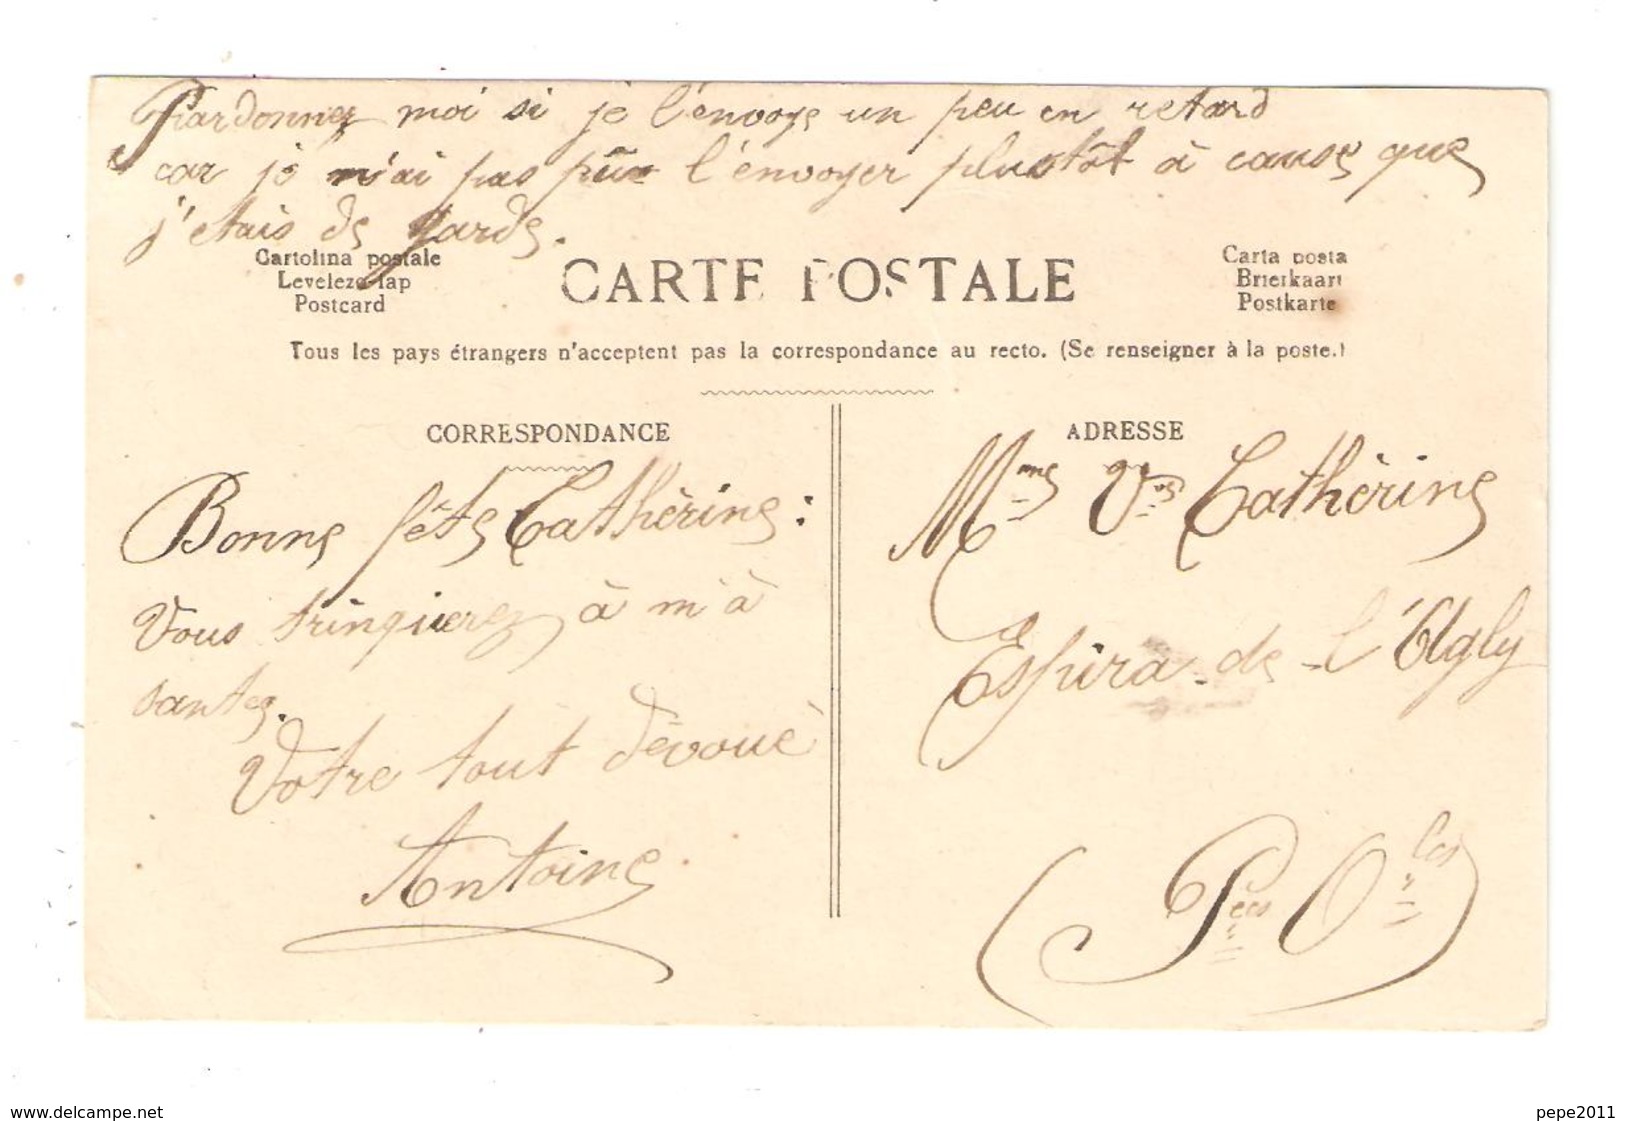 Pardonnez moi si je l'envoye un peu en retard
car je n'ai pas pûe l'envoyer plustôt à cause que
j'etais de garde.
Cartolina postale
Levelezo-lap
Postcard
CARTE POSTALE
Carta posta
Brierkaart
Postkarte
Tous les pays étrangers n'acceptent pas la correspondance au recto. (Se renseigner à la poste.)
CORRESPONDANCE
Bonne fête Cathèrine:
Vous trinquierez à m'à
santez.
Votre tout dèvouè
Antoine.
ADRESSE
Mme Vve Cathèrine
Espira-de-l'Agly
(Pées Oles)
www.delcampe.net
pepe2011